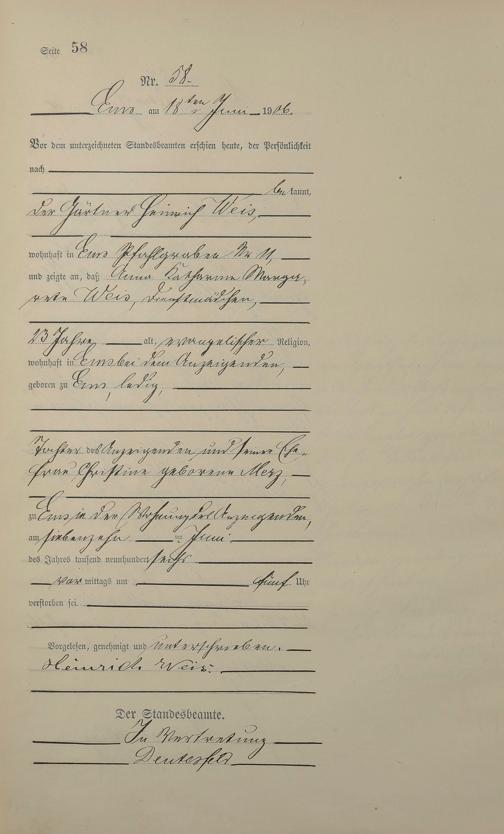 Seite 58
Nr. 58.
Ems am 18ten Juni 1906.
Vor dem unterzeichneten Standesbeamten erschien heute, der Persönlichkeit
nach
be kannt,
der Gärtner Heinrich Weis,
wohnhaft in Ems Pfahlgraben Nr 11,
und zeigte an, daß Anna Katharine Marga-
rete Weis, Dienstmädchen,
23 Jahre alt, evangelischer Religion,
wohnhaft in Ems bei dem Anzeigenden,
geboren zu Ems, ledig,
Tochter des Anzeigenden und seiner Ehe-
frau Christine geborene Merz,
zu Ems in der Wohnung des Anzeigenden,
am siebenzehn ten Juni
des Jahres tausend neunhundert sechs
vor mittags um fünf Uhr
verstorben sei.
Vorgelesen, genehmigt und unterschrieben.
Heinrich Weis.
Der Standesbeamte.
In Vertretung